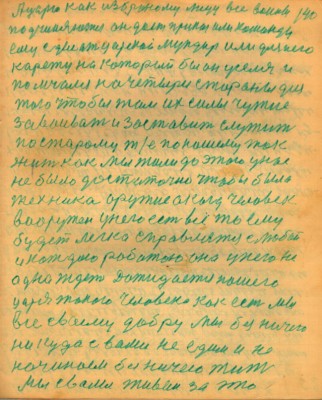 Лугро как избраному лицу все вами 140
подчиняются он даст приказ или команду
ему судиат дарской мундир или длинего
карету на который бы он уселя и
помчался на четыри староны для
того чтобы там их силы чужие
завоеват и заставит служит
постарому т/е по нашему так
жит как мы жили до этого у нас
не было достаточно чтобы была
техника оружие а когд человек
вооружен у него ест все то ему
будет легко справлятся с любой
и каждаю работаю она у него не
одна ждет дожидается нашего
царя такого человека как ест мы
все своему добру мы бы ничего
никуда с вами не едим и не
начинаем бы ничего жит
мы с вами живем за это